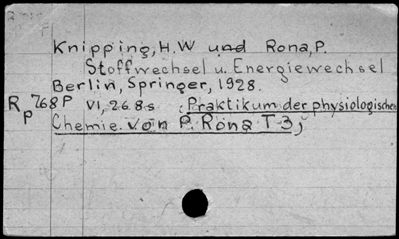 Knipping, H.W und Rona, P.
Stoffwechsel u. Energiewechsel
Berlin, Springer, 1928.
Rp 768P VI, 268 s (Praktikum der physiologischen
Chemie von P. Rona T 3,)